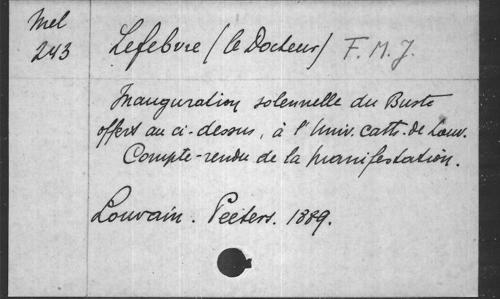 Mel
243
Lefebvre (le Docteur) F. M. J.
Inauguration solennelle du Buste
offert au ci-dessus, à l'Univ. cath. de Louv.
Compte-rendu de la manifestation.
Louvain. Peeters. 1889.